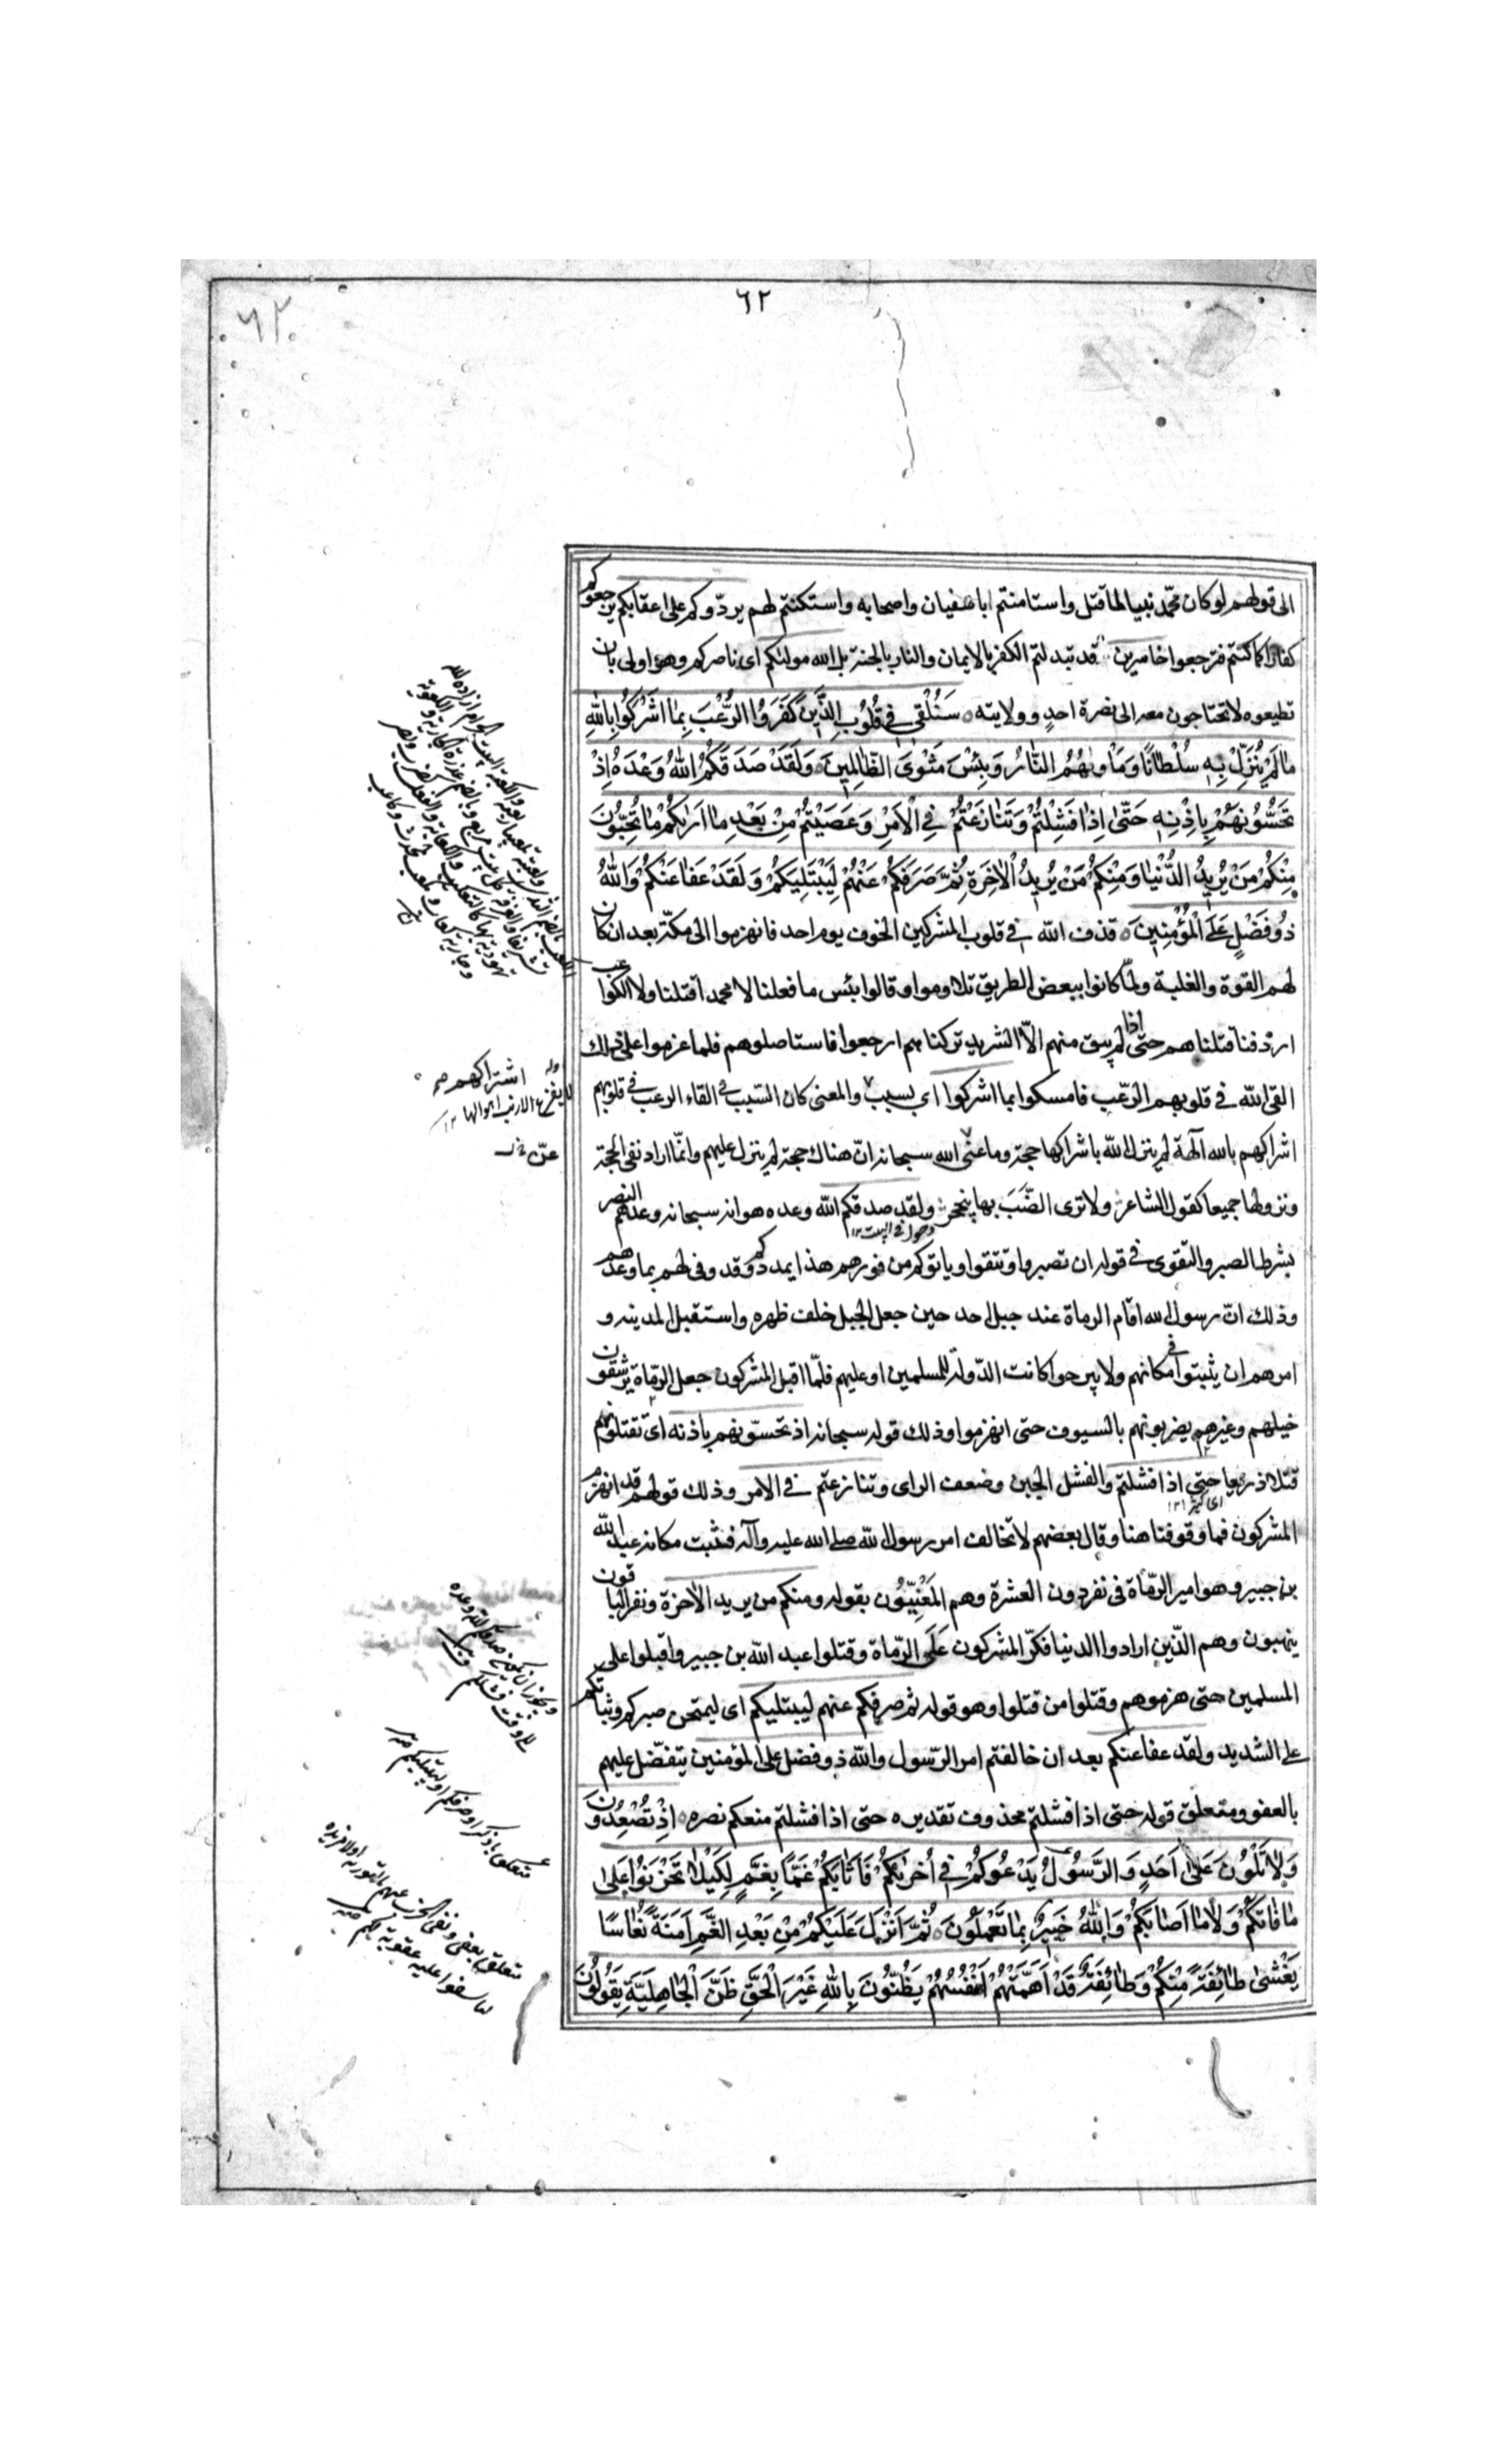 ٦٢
٦٢
الى قولهم لو كان محمّد نبيا لما قتل واستامنتم ابا سفيان واصحابه واستكنتم لهم يردّوكم على اعقابكم يرجعوكم
كفارا كما كنتم فترجعوا خاسرين قد تبدلتم الكفر بالايمان والنار بالجنة بل الله موليٰكم اى ناصركم وهو اولى بان
تطيعوه لا تحتاجون معه الى نصرة احدٍ وولايته سَنُلْقي في قُلُوبِ الَّذينَ كَفَرُوا الرُّعْبَ بِمٰا اَشْرَكُوا بِاللهِ
مٰا لَمْ يُنَزِّلْ بِهِ سُلْطٰانًا وَمَاْوٰيهُمُ النّٰارُ وَبِئْسَ مَثْوَى الظّٰالِمينَ وَلَقَدْ صَدَقَكُمُ اللهُ وَعْدَهُ اِذْ
تَحُسُّونَهُمْ بِاِذْنِهِ حَتّٰى اِذٰا فَشِلْتُمْ وَتَنٰازَعْتُمْ فِي الْاَمْرِ وَعَصَيْتُمْ مِنْ بَعْدِ مٰا اَرٰيكُمْ مٰا تُحِبُّونَ
مِنْكُمْ مَنْ يُريدُ الدُّنْيٰا وَمِنْكُمْ مَنْ يُريدُ الْاٰخِرَةَ ثُمَّ صَرَفَكُمْ عَنْهُمْ لِيَبْتَلِيَكُمْ وَلَقَدْ عَفٰا عَنْكُمْ وَاللهُ
ذُو فَضْلٍ عَلَى الْمُؤْمِنينَ قذف الله في قلوب المشركين الخوف يوم احد فانهزموا الى مكّة بعد ان كان
لهم القوة والغلبة ولمّا كانوا ببعض الطريق تلاوموا وقالوا بئس ما فعلنا لا محمد اقتلنا ولا الكواعب
اردفنا قتلناهم حتى اذا لم يبق منهم الاّ الشريد تركناهم ارجعوا فاستاصلوهم فلما عزموا على ذلك
القى الله في قلوبهم الرّعب فامسكوا بما اشركوا اى بسبب والمعنى كان السّبب في القاء الرعب في قلوبهم
اشراكهم بالله آلهة لم ينزل الله باشراكها حجة وما عنى الله سبحانه انّ هناك حجة لم ينزل عليهم وانّما اراد نفى الحجة
ونزولها جميعا كقول الشاعر ولا ترى الضَّبَ بها ينجحر ولقد صدقكم الله وعده هو انه سبحانه وعدهم النصر
بشرط الصبر والتقوى في قوله ان تصبروا وتتقوا وياتوكم من فورهم هذا يمددكم وقد وفى لهم بما وعدهم
وذلك انّ رسول الله اقام الرماة عند جبل احد حين جعل الجبل خلف ظهره واستقبل المدينه و
امرهم ان يثبتوا في مكانهم ولا يبرحوا كانت الدّولة للمسلمين او عليهم فلمّا اقبل المشركون جعل الرمّاة يرشقون
خيلهم وغيرهم يضربونهم بالسيوف حتى انهزموا وذلك قوله سبحانه اذ تحسّونهم باذنه اى تقتلونهم
قتلا ذريعا حتى اذا فشلتم والفشل الجبن وضعف الراى وتنازعتم في الامر وذلك قولهم قد انهزم
المشركون فما وقوفنا هنا وقال بعضهم لا تخالف امر رسول الله صلى الله عليه وآله فثبت مكانه عبد الله
بن جبير وهو امير الرمّاة فى نفر دون العشرة وهم المَعْنِيّوُن بقوله ومنكم من يريد الاخرة ونفر الباقون
ينهبون وهم الذّين ارادوا الدنيا فكرّ المشركون عَلَى الرّماة وقتلوا عبد الله بن جبير واقبلوا على
المسلمين حتى هزموهم وقتلوا من قتلوا وهو قوله ثم صرفكم عنهم ليبتليكم اى ليمتحن صبركم وثباتكم
على الشديد ولقد عفا عنكم بعد ان خالفتم امر الرّسول والله ذو فضل على المؤمنين يتفضّل عليهم
بالعفو ومتعلق قوله حتى اذا فشلتم محذوف تقديره حتى اذا فشلتم منعكم نصره اِذْ تُصْعِدُونَ
وَلٰا تَلْوُنَ عَلىٰ اَحَدٍ وَالرَّسُولُ يَدْعُوكُمْ في اُخْرٰيكُمْ فَاَثٰابَكُمْ غَمًّا بِغَمٍّ لِكَيْلٰا تَحْزَنُوا عَلىٰ
مٰا فٰاتَكُمْ وَلٰا مٰا اَصٰابَكُمْ وَاللهُ خَبيرٌ بِمٰا تَعْمَلُونَ ثُمَّ اَنْزَلَ عَلَيْكُمْ مِنْ بَعْدِ الْغَمِّ اَمَنَةً نُعٰاسًا
يَغْشىٰ طٰائِفَةً مِنْكُمْ وَطٰائِفَةٌ قَدْ اَهَمَّتْهُمْ اَنْفُسُهُمْ يَظُنُّونَ بِاللهِ غَيْرَ الْحَقِّ ظَنَّ الْجٰاهِلِيَّةِ يَقُولُونَ
اشتراكهم